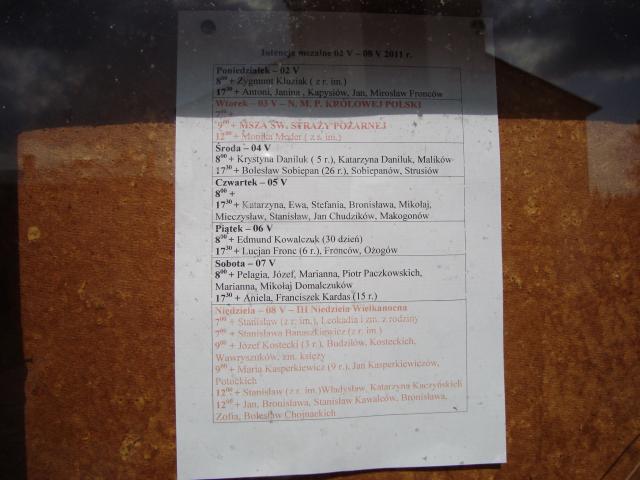 Intencje mszalne 02 V – 08 V 2011 r.
Poniedziałek – 02 V
8⁰⁰ + Zygmunt Kluziak ( z r. im.)
17³⁰ + Antoni, Janina , Kapysiów, Jan, Mirosław Fronców
Wtorek – 03 V – N. M. P. KRÓLOWEJ POLSKI
7⁰⁰ +
9⁰⁰ + MSZA ŚW. STRAŻY POŻARNEJ
12⁰⁰ + Monika Meder ( z s. im.)
Środa – 04 V
8⁰⁰ + Krystyna Daniluk ( 5 r.), Katarzyna Daniluk, Malików
17³⁰ + Bolesław Sobiepan (26 r.), Sobiepanów, Strusiów
Czwartek – 05 V
8⁰⁰ +
17³⁰ + Katarzyna, Ewa, Stefania, Bronisława, Mikołaj,
Mieczysław, Stanisław, Jan Chudzików, Makogonów
Piątek – 06 V
8⁰⁰ + Edmund Kowalczuk (30 dzień)
17³⁰ + Lucjan Fronc (6 r.), Fronców, Ożogów
Sobota – 07 V
8⁰⁰ + Pelagia, Józef, Marianna, Piotr Paczkowskich,
Marianna, Mikołaj Domalczuków
17³⁰ + Aniela, Franciszek Kardas (15 r.)
Niedziela – 08 V – III Niedziela Wielkanocna
7⁰⁰ + Stanisław (z r. im.), Leokadia i zm. z rodziny
7⁰⁰ + Stanisława Banaszkiewicz (z r. im.)
9⁰⁰ + Józef Kostecki (3 r.), Budziłów, Kosteckich,
Wawryszuków, zm. księży
9⁰⁰ + Maria Kasperkiewicz (9 r.), Jan Kasperkiewiczów,
Potockich
12⁰⁰ + Stanisław (z r. im.)Władysław, Katarzyna Kaczyńskich
12⁰⁰ + Jan, Bronisława, Stanisław Kawalców, Bronisława,
Zofia, Bolesław Chojnackich